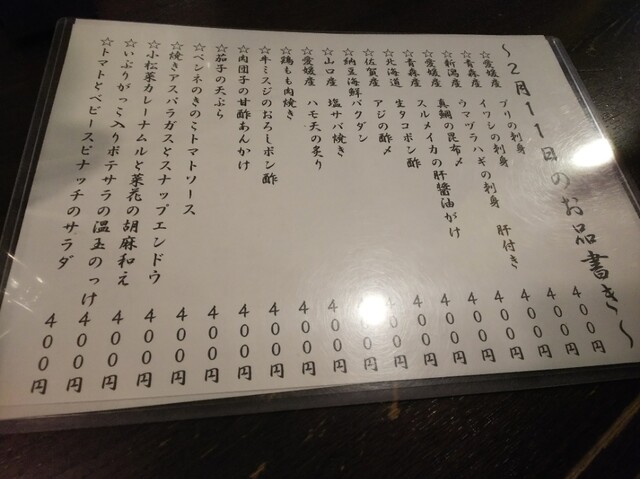 ～２月１１日のお品書き～
☆愛媛産 ブリの刺身 ４００円
☆青森産 イワシの刺身 ４００円
☆新潟産 ウマヅラハギの刺身 肝付き ４００円
☆愛媛産 真鯛の昆布〆 ４００円
☆青森産 スルメイカの肝醤油がけ ４００円
☆北海道 生タコポン酢 ４００円
☆佐賀産 アジの酢〆 ４００円
☆納豆海鮮バクダン ４００円
☆山口産 塩サバ焼き ４００円
☆愛媛産 ハモ天の炙り ４００円
☆鶏もも肉焼き ４００円
☆牛ミスジのおろしポン酢 ４００円
☆肉団子の甘酢あんかけ ４００円
☆茄子の天ぷら ４００円
☆ペンネのきのこトマトソース ４００円
☆焼きアスパラガスとスナップエンドウ ４００円
☆小松菜カレーナムルと菜花の胡麻和え ４００円
☆いぶりがっこ入りポテサラの温玉のっけ ４００円
☆トマトとベビースピナッチのサラダ ４００円